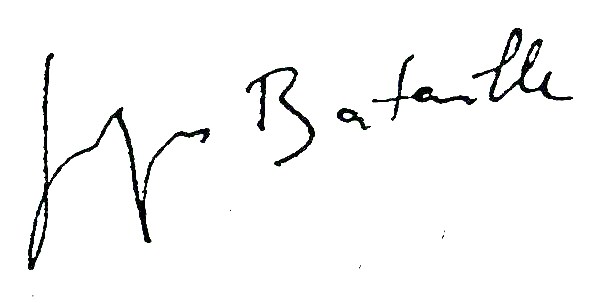 Georges Bataille